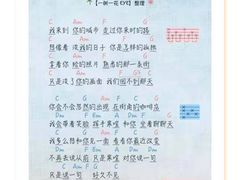 【一树一花《》】整理
C Am F G
我来到 你的城市 走过你来时的路
C Am F G
想像着 没我的日子 你是怎样的孤独
C Am F G
拿着你 给的照片 熟悉的那一条街
C Am F G C
只是没了你的画面 我们回不到那天
F G Em Am Dm G C
你会不会忽然的出现 在街角的咖啡店
F G Em Am Dm F G
我会带着笑脸 挥手寒喧 和你 坐着聊聊天
C G Am Em F C
我多么想和你见一面 看看你最近改变
Dm F Em Am Dm
不再去说从前 只是寒喧 对你说一句
Dm G C
只是说一句 好久不见